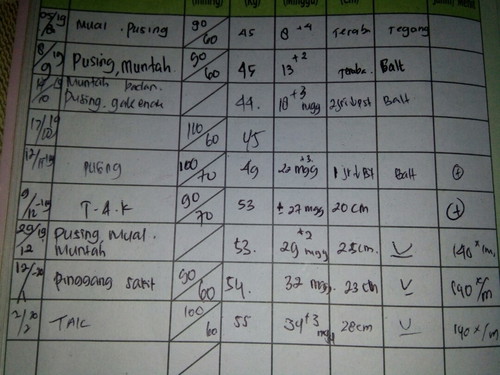 Mual. Pusing 90/60 45 8 +4 Teraba Tegang
8/9 19 Pusing, Muntah. 90/60 45 13 +2 Teraba. Ball
10 Muntah badan. 44. 18 +3 mgg Ball
Pusing. gak enak
17/10 19 110/60 45
12/11 19 pusing 100/70 49 22 +3 mgg Ball (+)
9/12 -19 T-A-K 90/70 53 ± 27 mgg 20 cm (+)
29/12 19 Pusing Mual. 53. 29 +2 mgg 25 cm. U 140 x/m
Muntah
12/1 -20 pinggang sakit 90/60 54. 32 mgg. 23 cm U 140 x/m
2/2 20 TAK 100/60 55 34 +3 mgg 28 cm U 140 x/m